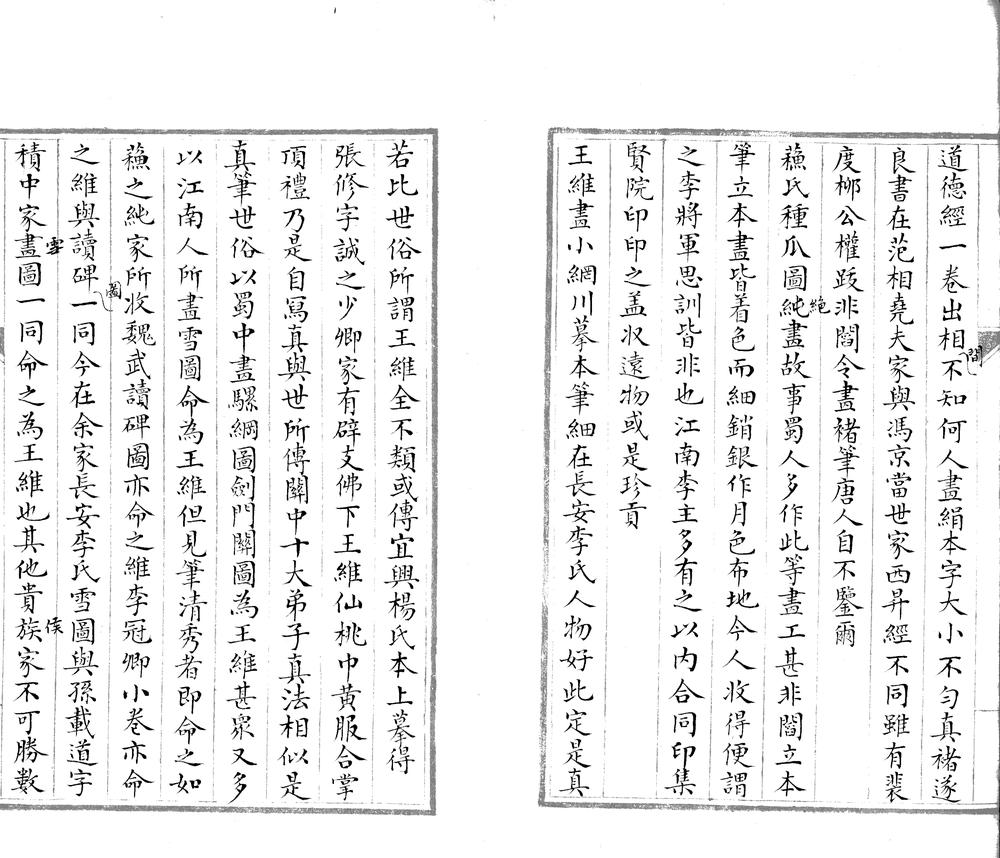 道德經一卷出相不知何人畫絹本字大小不勻真褚遂
閻
良書在范相堯夫家與馮京當世家西昇經不同雖有裴
度柳公權跋非閻令畫褚筆唐人自不鑒爾
蘓氏種瓜圖純畫故事蜀人多作此等畫工甚非閻立本
絕
筆立本畫皆着色而細銷銀作月色布地今人收得便謂
之李將軍思訓皆非也江南李主多有之以內合同印集
賢院印印之盖收遠物或是珍貢
王維畫小網川摹本筆細在長安李氏人物好此定是真
若比世俗所謂王維全不類或傳宜興楊氏本上摹得
張修字誠之少卿家有辟支佛下王維仙桃巾黃服合掌
頂禮乃是自寫真與世所傳關中十大弟子真法相似是
真筆世俗以蜀中畫騾綱圖劍門關圖為王維甚衆又多
以江南人所畫雪圖命為王維但見筆清秀者即命之如
蘓之純家所收魏武讀碑圖亦命之維李冠卿小卷亦命
之維與讀碑一同今在余家長安李氏雪圖與孫載道字
圖
積中家畫圖一同命之為王維也其他貴族家不可勝數
雪
侯